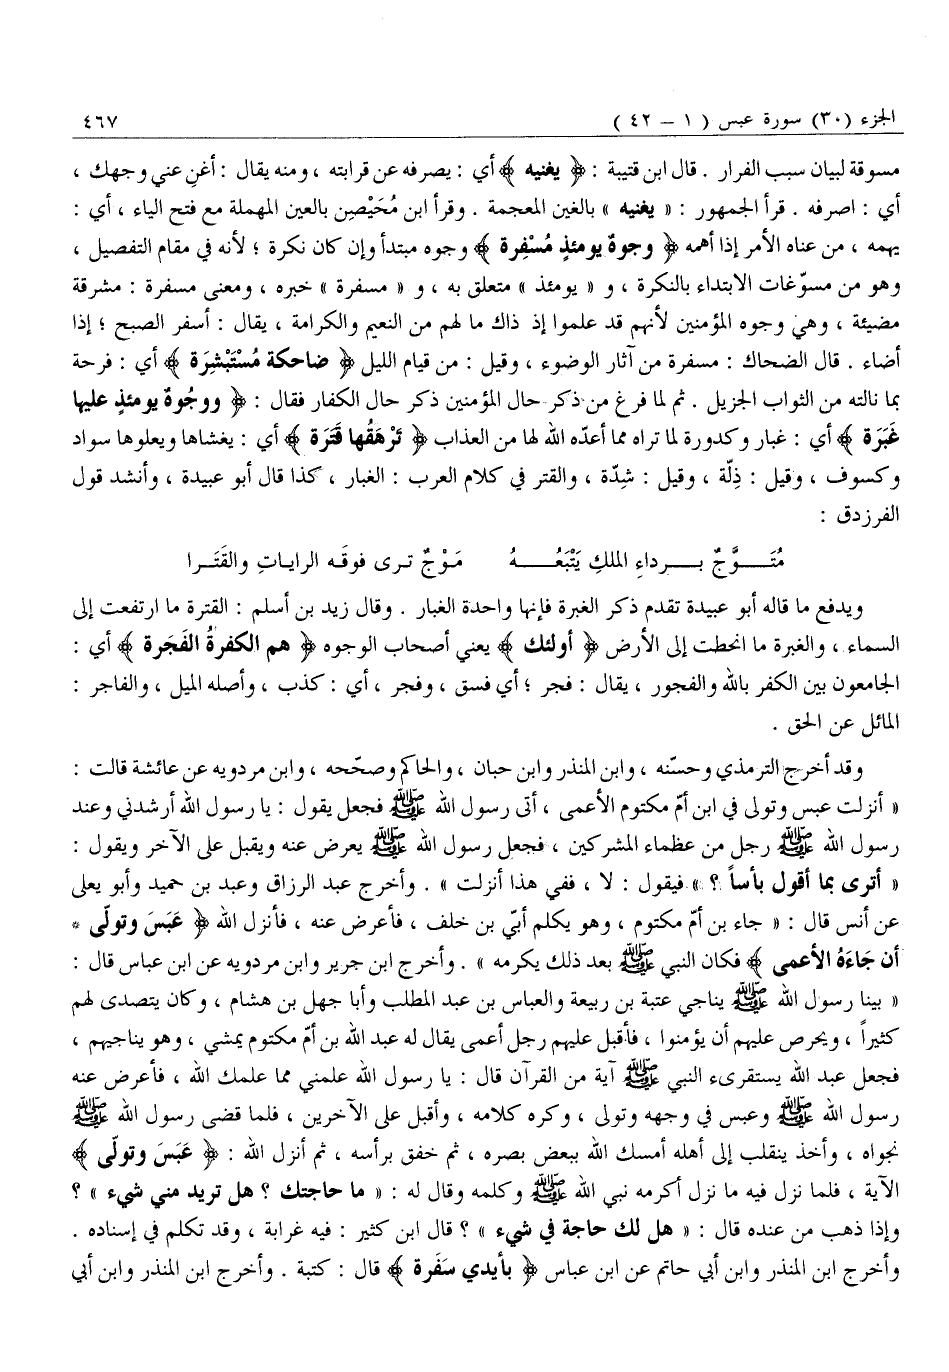 الجزء (٣٠) سورة عبس ( ١ – ٤٢ ) ٤٦٧
مسوقة لبيان سبب الفرار . قال ابن قتيبة : ﴿ يغنيه ﴾ أي : يصرفه عن قرابته ، ومنه يقال : أغنِ عني وجهك ،
أي : اصرفه . قرأ الجمهور : « يغنيه » بالغين المعجمة . وقرأ ابن مُحَيْصِن بالعين المهملة مع فتح الياء ، أي :
يهمه ، من عناه الأمر إذا أهمه ﴿ وجوهٌ يومئذٍ مُسْفِرة ﴾ وجوه مبتدأ وإن كان نكرة ؛ لأنه في مقام التفصيل ،
وهو من مسوّغات الابتداء بالنكرة ، و « يومئذ » متعلق به ، و « مسفرة » خبره ، ومعنى مسفرة : مشرقة
مضيئة ، وهي وجوه المؤمنين لأنهم قد علموا إذ ذاك ما لهم من النعيم والكرامة ، يقال : أسفر الصبح ؛ إذا
أضاء . قال الضحاك : مسفرة من آثار الوضوء ، وقيل : من قيام الليل ﴿ ضاحكة مُسْتَبْشِرَة ﴾ أي : فرحة
بما نالته من الثواب الجزيل . ثم لما فرغ من ذكر حال المؤمنين ذكر حال الكفار فقال : ﴿ ووجُوهٌ يومئذٍ عليها
غَبَرَة ﴾ أي : غبار وكدورة لما تراه مما أعدّه الله لها من العذاب ﴿ تَرْهَقُها قَتَرَة ﴾ أي : يغشاها ويعلوها سواد
وكسوف ، وقيل : ذِلّة ، وقيل : شِدّة ، والقتر في كلام العرب : الغبار ، كذا قال أبو عبيدة ، وأنشد قول
الفرزدق :
مُتَـــوَّجٌ بـــرداءِ الملكِ يَتْبَعُـــهُ مَـوْجٌ تـرى فوقَـه الرايـاتِ والقَتَـرا
ويدفع ما قاله أبو عبيدة تقدم ذكر الغبرة فإنها واحدة الغبار . وقال زيد بن أسلم : القترة ما ارتفعت إلى
السماء ، والغبرة ما انحطت إلى الأرض ﴿ أولئك ﴾ يعني أصحاب الوجوه ﴿ هم الكفرةُ الفَجَرة ﴾ أي :
الجامعون بين الكفر بالله والفجور ، يقال : فجر ؛ أي فسق ، وفجر ، أي : كذب ، وأصله الميل ، والفاجر :
المائل عن الحق .
وقد أخرج الترمذي وحسّنه ، وابن المنذر وابن حبان ، والحاكم وصحّحه ، وابن مردويه عن عائشة قالت :
« أنزلت عبس وتولى في ابن أمّ مكتوم الأعمى ، أتى رسول الله ﷺ فجعل يقول : يا رسول الله أرشدني وعند
رسول الله ﷺ رجل من عظماء المشركين ، فجعل رسول الله ﷺ يعرض عنه ويقبل على الآخر ويقول :
« أترى بما أقول بأساً ؟ » فيقول : لا ، ففي هذا أنزلت » . وأخرج عبد الرزاق وعبد بن حميد وأبو يعلى
عن أنس قال : « جاء بن أمّ مكتوم ، وهو يكلم أبيّ بن خلف ، فأعرض عنه ، فأنزل الله ﴿ عَبَسَ وتولّى *
أن جَاءَهُ الأعمى ﴾ فكان النبي ﷺ بعد ذلك يكرمه » . وأخرج ابن جرير وابن مردويه عن ابن عباس قال :
« بينا رسول الله ﷺ يناجي عتبة بن ربيعة والعباس بن عبد المطلب وأبا جهل بن هشام ، وكان يتصدى لهم
كثيراً ، ويحرص عليهم أن يؤمنوا ، فأقبل عليهم رجل أعمى يقال له عبد الله بن أمّ مكتوم يمشي ، وهو يناجيهم ،
فجعل عبد الله يستقرىء النبي ﷺ آية من القرآن قال : يا رسول الله علمني مما علمك الله ، فأعرض عنه
رسول الله ﷺ وعبس في وجهه وتولى ، وكره كلامه ، وأقبل على الآخرين ، فلما قضى رسول الله ﷺ
نجواه ، وأخذ ينقلب إلى أهله أمسك الله ببعض بصره ، ثم خفق برأسه ، ثم أنزل الله : ﴿ عَبَسَ وتولّى ﴾
الآية ، فلما نزل فيه ما نزل أكرمه نبي الله ﷺ وكلمه وقال له : « ما حاجتك ؟ هل تريد مني شيء » ؟
وإذا ذهب من عنده قال : « هل لك حاجة في شيء » ؟ قال ابن كثير : فيه غرابة ، وقد تكلم في إسناده .
وأخرج ابن المنذر وابن أبي حاتم عن ابن عباس ﴿ بأيدي سَفَرة ﴾ قال : كتبة . وأخرج ابن المنذر وابن أبي